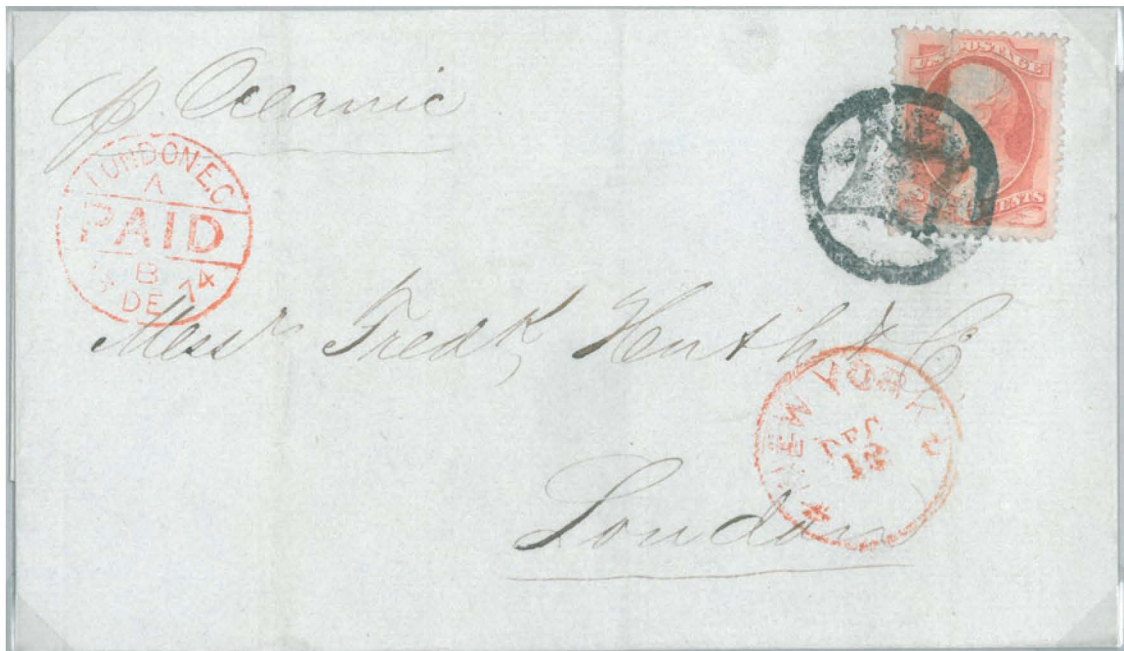 p. Oceanic
U.S. POSTAGE
CENTS
LONDON.E.C
A
PAID
B
DE 74
Messrs Fredk Huth & Co.
NEW YORK
DEC
12
London